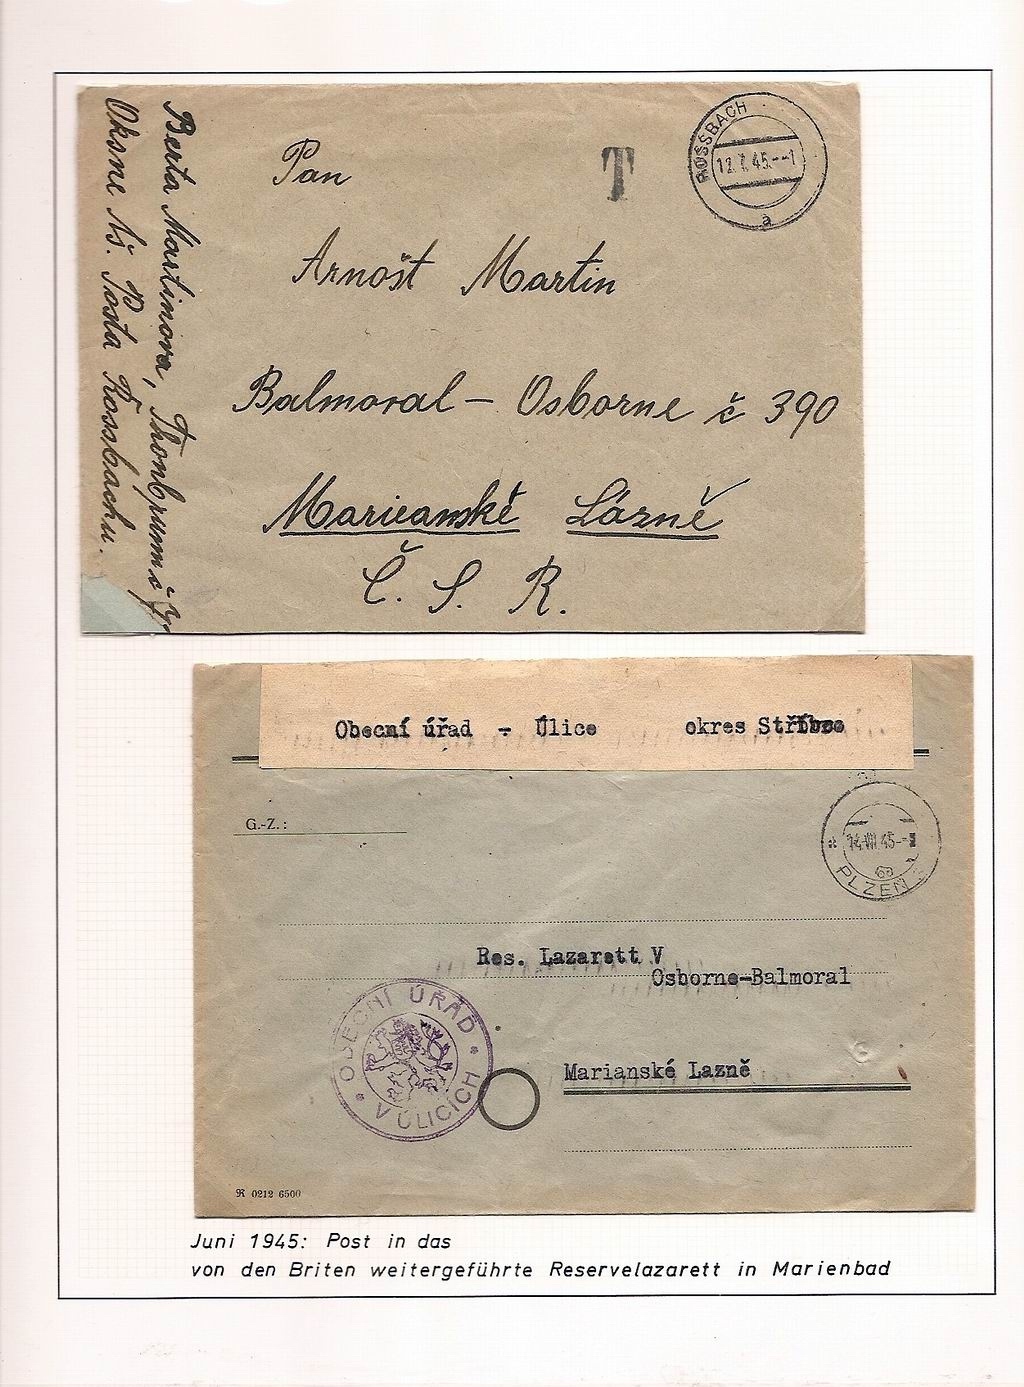 Berta Martinova, Thonbrunn č
Oksne Aš. Posta Rossbachu.
Pan
T
ROSSBACH
12.7.45.--1
a
Arnošt Martin
Balmoral - Osborne č 390
Marieanskè Lázně
Č. S. R.
Obecní úřad - Úlice okres Stříbro
G.-Z.:
14.VII.45-
PLZEŇ
Res. Lazarett V
Osborne-Balmoral
OBECNÍ ÚŘAD
V ÚLICÍCH
Marianské Lazně
R 0212 6500
Juni 1945: Post in das
von den Briten weitergeführte Reservelazarett in Marienbad